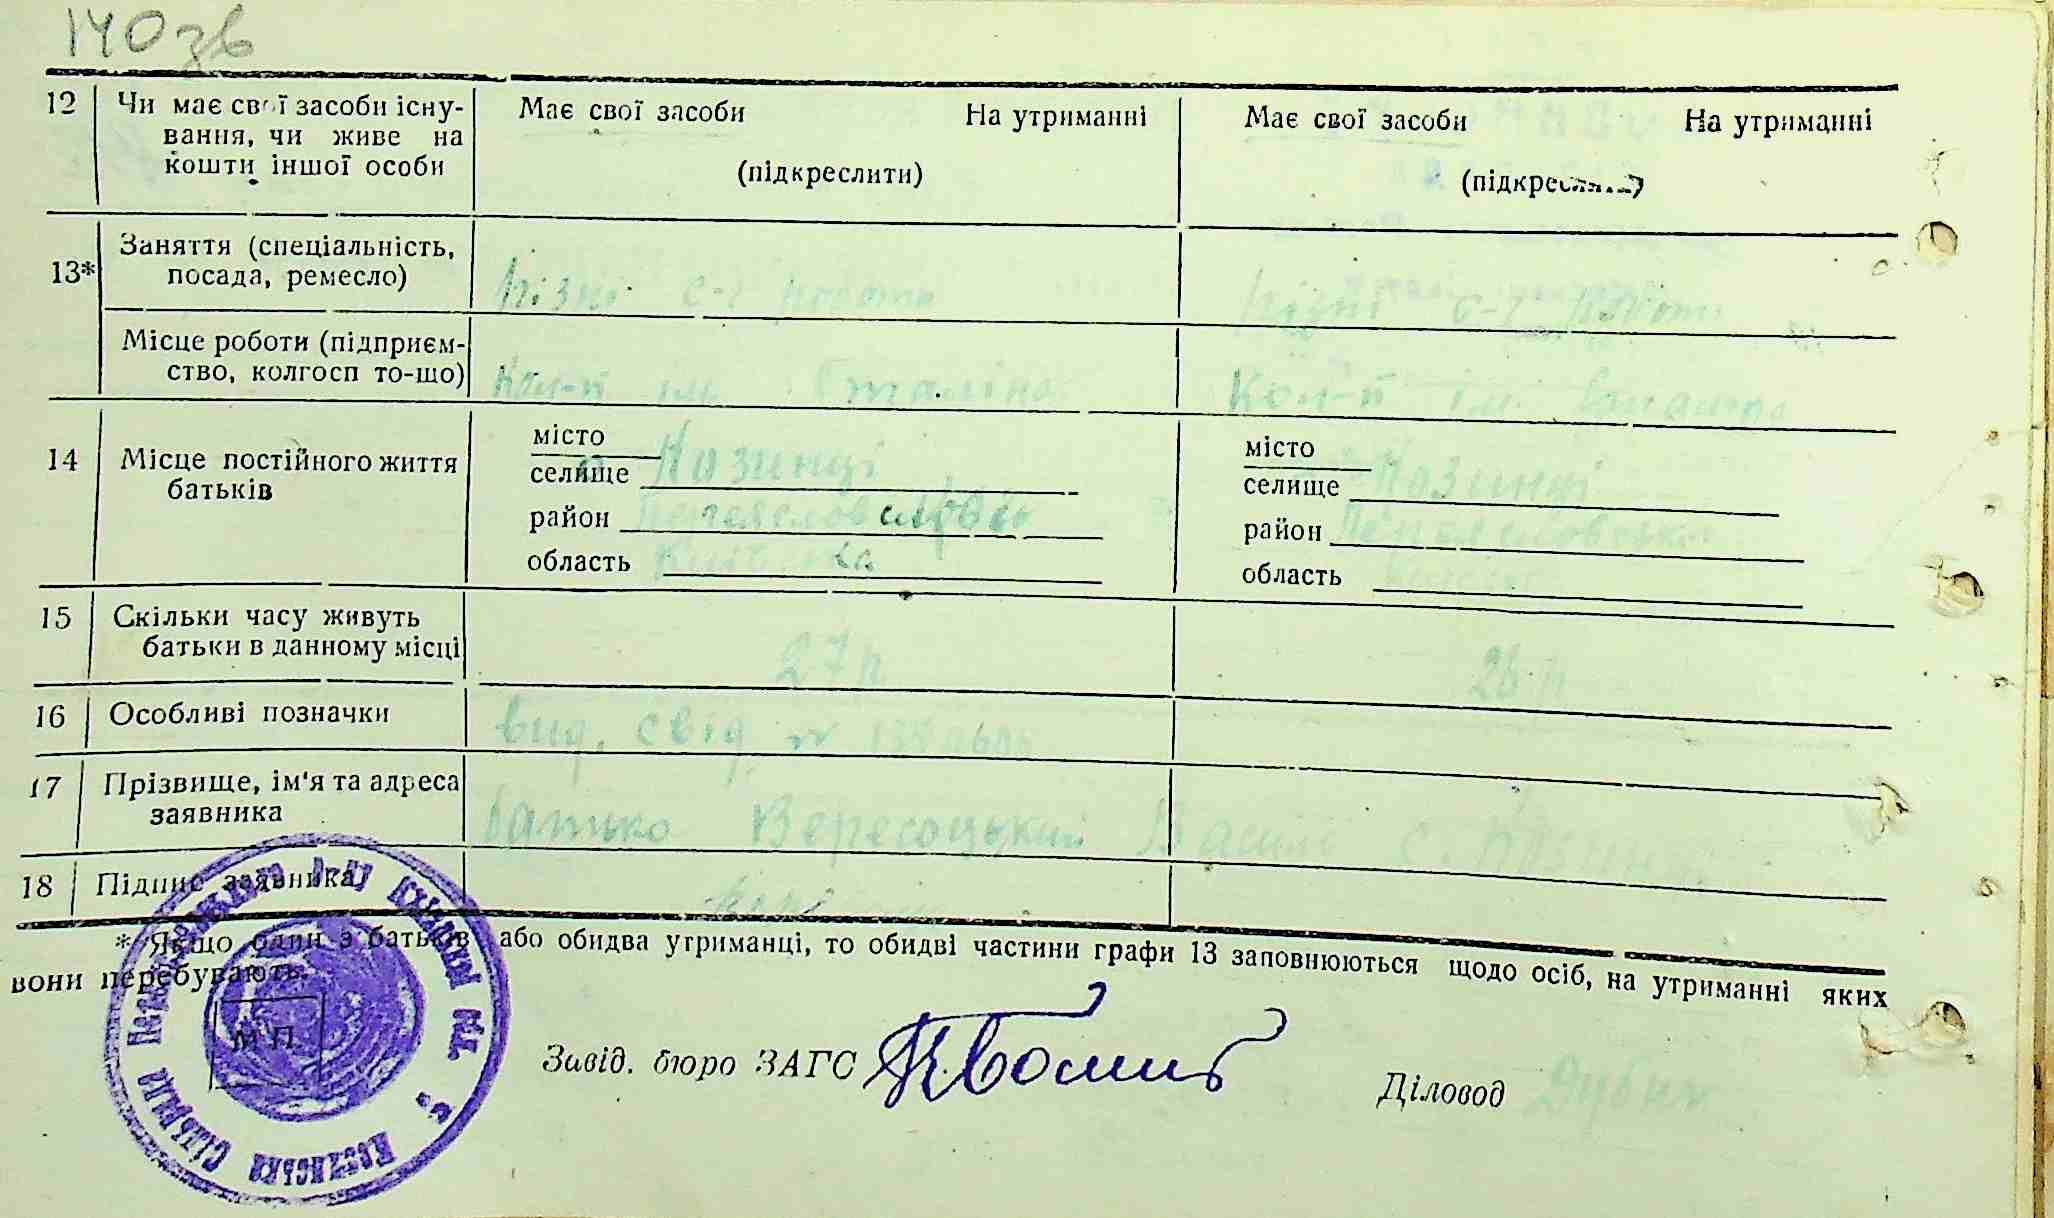 140 зв
12 Чи має свої засоби існу- Має свої засоби На утриманні Має свої засоби На утриманні
вання, чи живе на
кошти іншої особи (підкреслити) (підкреслити)
Заняття (спеціальність,
13* посада, ремесло) Різні с-г роботи Різні с-г роботи
Місце роботи (підприєм-
ство, колгосп то-що) Кол-п ім. Сталіна Кол-п ім.
14 Місце постійного життя місто місто
батьків селище Козинці селище Козинці
район район Переяславський
область Київська область
15 Скільки часу живуть
батьки в данному місці 27 р 26 р
16 Особливі позначки вид. свід. №
17 Прізвище, ім'я та адреса
заявника батько Вересоцький Василь с. Козинці
18 Підпис заявника
* Якщо один з батьків або обидва утриманці, то обидві частини графи 13 заповнюються щодо осіб, на утриманні яких
вони перебувають.
М П.
Завід. бюро ЗАГС Діловод